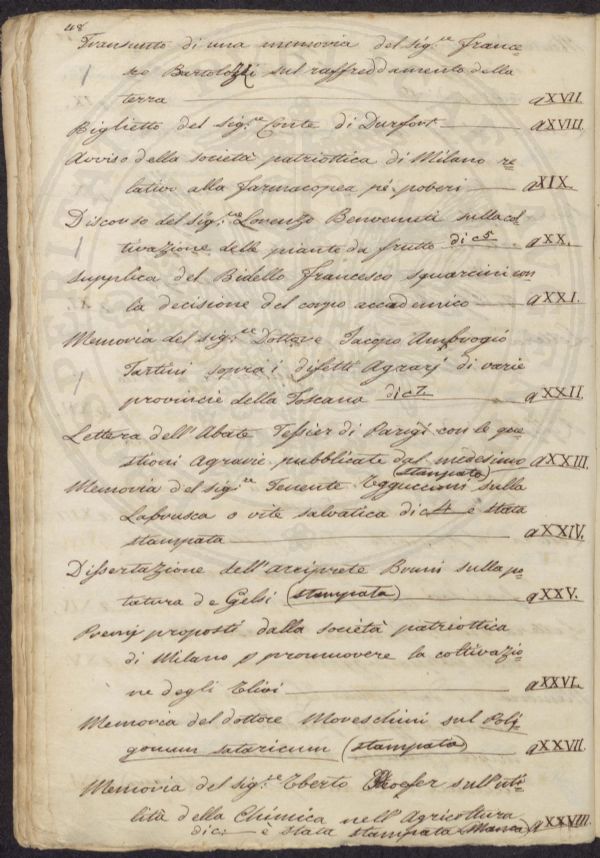 48
Transunto di una memoria del sig.re France-
sco Bartolozzi sul raffreddamento della
terra — a XVII.
Biglietto del sig.re Conte di Durfort — a XVIII.
Avviso della società patriottica di Milano re-
lativo alla farmacopea pe' poberi — a XIX.
Discorso del sig.re Lorenzo Benvenuti sulla col-
tivazione delle piante da frutto di c 5 a XX.
Supplica del Bidello Francesco Squarcini con
la decisione del corpo accademico — a XXI.
Memoria del sig.re Dottore Jacopo Ambrogio
Tartini sopra i difetti Agrarj di varie
provincie della Toscana di c 7. — a XXII.
Lettera dell'Abate Tessier di Parigi con le que-
stioni Agrarie pubblicate dal medesimo a XXIII.
(stampata)
Memoria del sig.re Tenente sulla
Labrusca o vite salvatica di c 4 è stata
stampata — a XXIV.
Dissertazione dell'arciprete Bruni sulla po-
tatura de Gelsi (stampata) — a XXV.
Premj proposti dalla società patriottica
di Milano p promuovere la coltivazio-
ne degli Ulivi — a XXVI.
Memoria del dottore Moreschini sul Poli-
gonum sataricum (stampata) — a XXVII.
Memoria del sig.re Uberto Hoefer sull'uti-
lità della Chimica nell'Agricoltura
di c. — è stata stampata Manca a XXVIII.